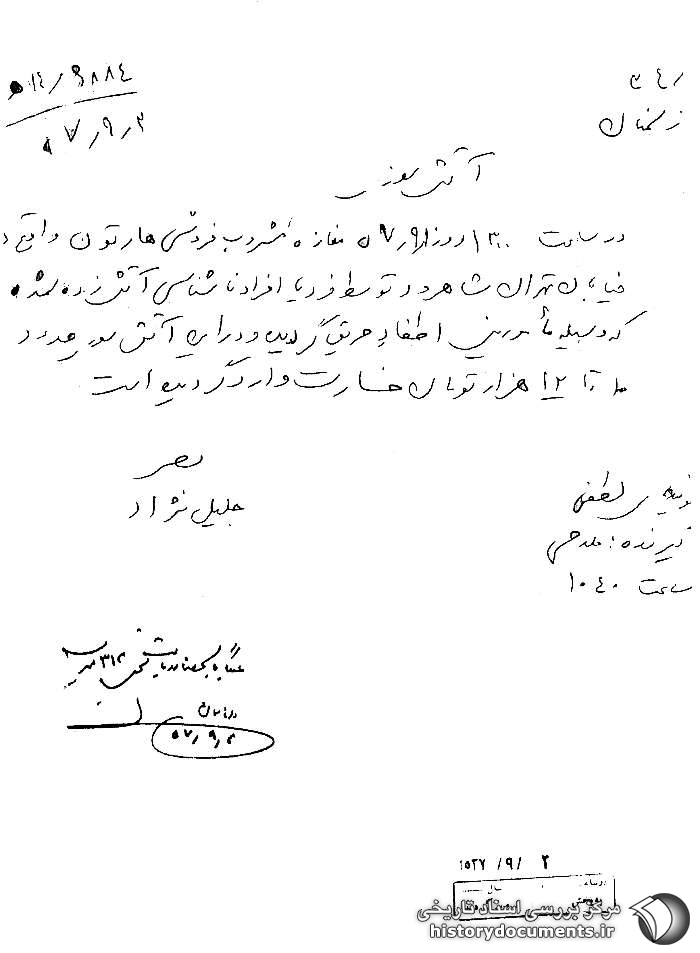 ۳٤۱
از سمنان
۱٤/۹۸۸٤
۵۷/۹/۲
آتش سوزی
در ساعت ۱۳۰۰ روز ۵۷/۹/۱ مغازه مشروب فروشی هارتون واقع در
خیابان تهران شاهرود توسط فرد یا افراد ناشناسی آتش زده شده
که وسیله مأمورین اطفاء حریق گردیده و در این آتش سوزی حدود
۱۰ تا ۱۲ هزار تومان خسارت وارد گردیده است
جلیل نژاد
گوینده: لطفی
گیرنده:
ساعت ۱۰٤۰
۳۱۲
۵۷/۹/۲
۱۵۲۷ /۹/ ۲
مرکز بررسی اسناد تاریخی
historydocuments.ir